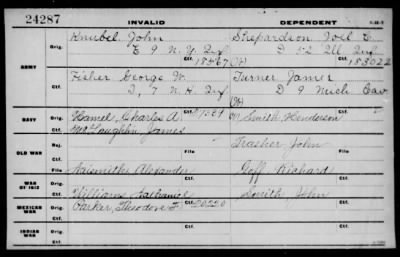 24287 INVALID DEPENDENT
ARMY
Orig. Knubel, John Shepardson, Joel
E 9 N.Y. Inf D 52 Ill Inf
Ctf.
Orig. Fisher George W. Turner James
I, 7 N.H. Inf D 9 Mich Cav
Ctf.
NAVY
Orig. Hamel, Charles A. Smith Henderson
Ctf. McLaughlin, James
OLD WAR
Rej. Frasher John
File File
Ctf. Naismith Alexander Goff Richard
WAR OF 1812
Orig. Williams Nathaniel Smith John
Ctf.
MEXICAN WAR
Orig. Parker, Theodore F. 20220
Ctf.
INDIAN WAR
Orig.
Ctf.